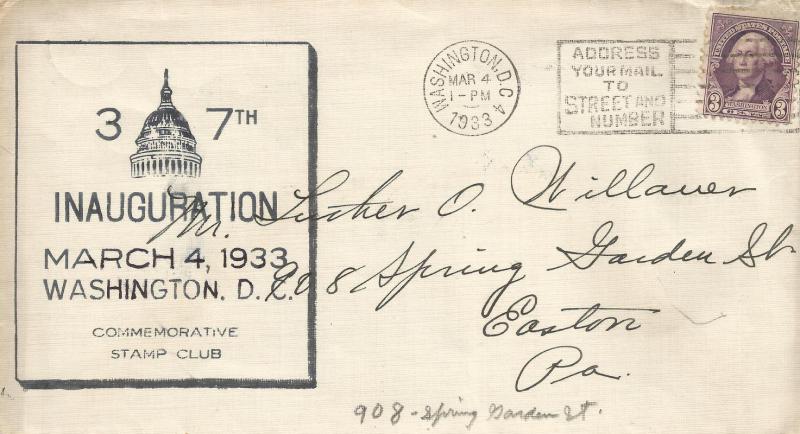 3 7TH
INAUGURATION
MARCH 4, 1933
WASHINGTON. D. C.
COMMEMORATIVE
STAMP CLUB
WASHINGTON, D.C. 4
MAR 4
1-PM
1933
ADDRESS
YOUR MAIL
TO
STREET AND
NUMBER
UNITED STATES POSTAGE
3 WASHINGTON 3
Mr. Luther O. Willauer
908 Spring Garden St.
Easton
Pa.
908 - Spring Garden St.